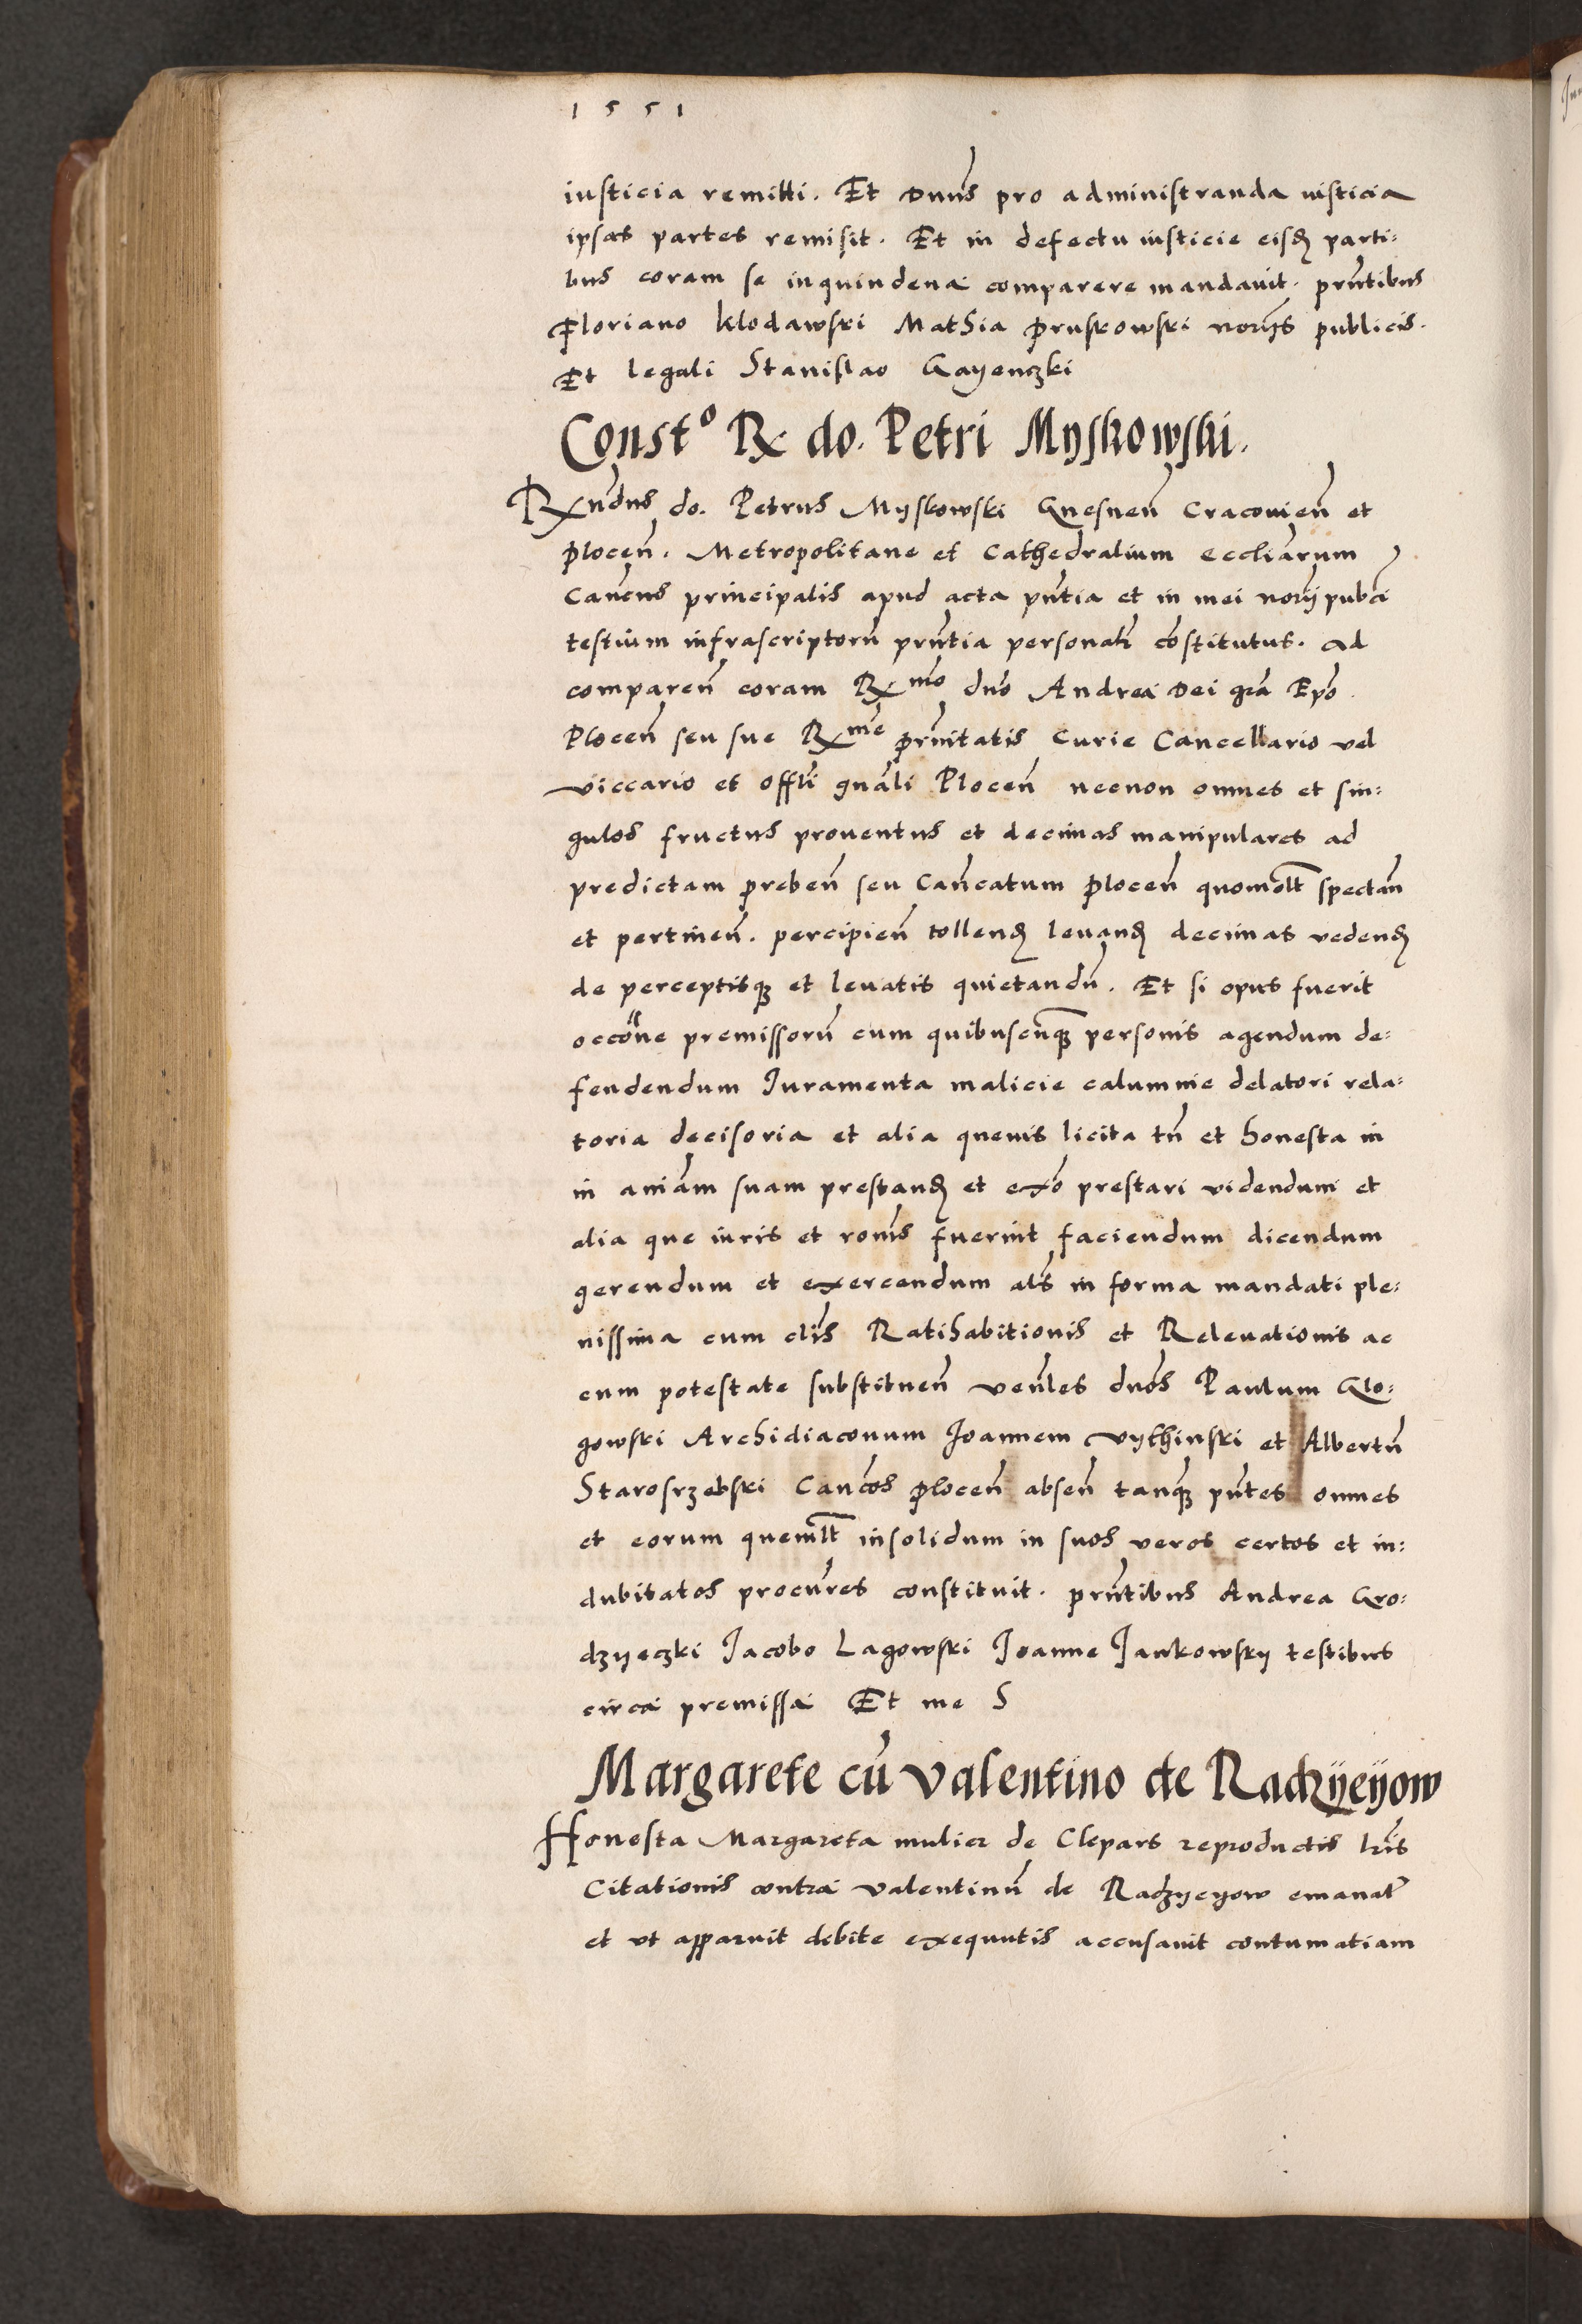 1551
iusticia remitti. Et Dnūs pro administranda iusticia
ipsas partes remisit. Et in defectu iusticie eisdꝫ parti:
bus coram se in quindena comparere mandauit. prn̄tibus
Floriano Klodawski Mathia Pruskowski norijs publicis.
Et legali Stanislao Gayenczki
Constº Rx do. Petri Myskowski.
Rxn̄dus do. Petrus Myskowski Gnesnen̄ Cracouien̄ et
Plocen̄. Metropolitane et Cathedralium eccl̄iarum
Can̄cus principalis apud acta pn̄tia et in mei norij pub̄ci
testium infrascriptorū prn̄tia personalr̄ cōstitutus. Ad
comparen̄ coram Rxmo dn̄o Andrea Dei gr̄a Ep̄o
Plocen̄ seu sue Rxme pr̄nitatis Curie Cancellario vel
viccario et offl̄i gn̄ali Plocen̄ necnon omnes et sin:
gulos fructus prouentus et decimas manipulares ad
predictam preben̄ seu Can̄catum Plocen̄ quomolt̄ spectan̄
et pertinen̄. percipien̄ tollendꝫ leuandꝫ decimas vedendꝫ
de perceptisqꝫ et leuatis quietandū. Et si opus fuerit
occōne premissorū cum quibuscūqꝫ personis agendum de:
fendendum Iuramenta malicie calumnie delatori rela:
toria decisoria et alia queuis licita tn̄ et honesta in
in aniām suam prestandꝫ et exō prestari videndum et
alia que iuris et ronīs fuerint faciendum dicendum
gerendum et exercendum als̄ in forma mandati ple:
nissima cum clīs Ratihabitionis et Releuationis ac
cum potestate substituen̄ ven̄les dnōs Paulum Glo:
gowski Archidiaconum Joannem Vythinski et Albertū
Starosrzebski Can̄cos Plocen̄ absen̄ tanqꝫ pn̄tes omnes
et eorum quemlt̄ insolidum in suos veros certos et in:
dubitatos procūres constituit. prn̄tibus Andrea Gro:
dzyeczki Jacobo Lagowski Joanne Jankowsky testibus
circa premissa Et me S
Margarete cū Valentino de Radzyeyow
Honesta Margareta mulier de Clepars reproductis lrīs
Citationis contra Valentinū de Radzyeyow emanat̄
et vt apparuit debite exequutis accusauit contumatiam